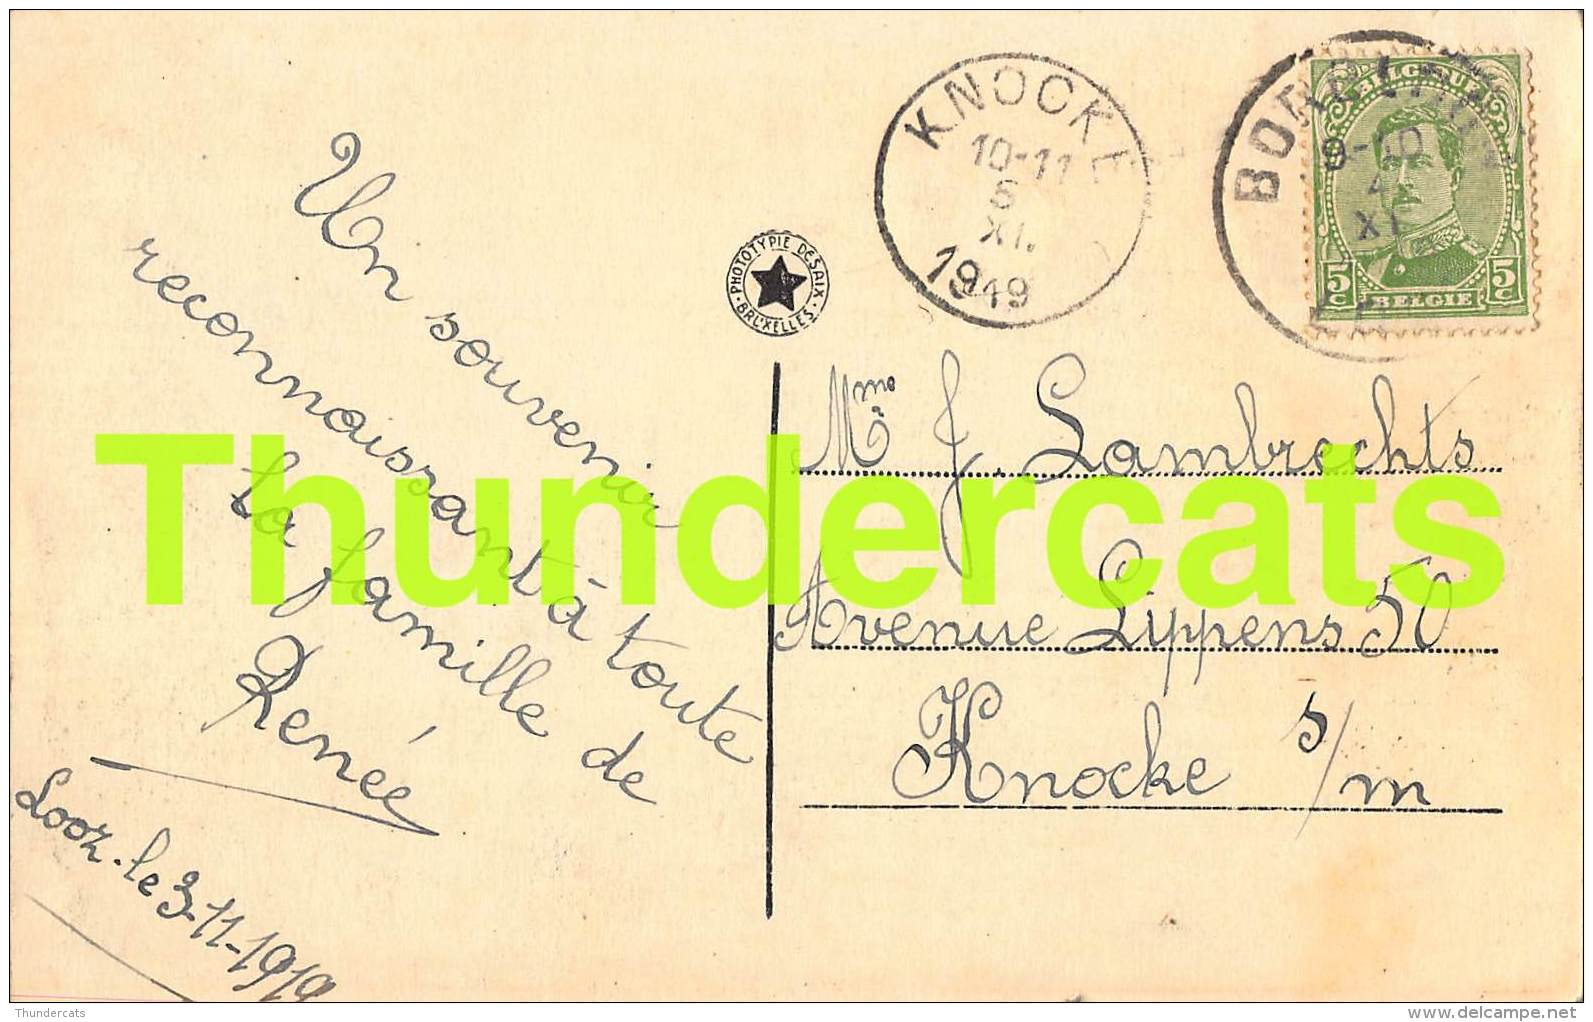 Un souvenir
reconnaissant à toute
la famille de
Renée
Looz. le 3-11-1919
PHOTOTYPIE DESAIX
BRUXELLES
KNOCKE
10-11
5
XI.
1919
9-10
4
XI
BELGIQUE
5 C
BELGIE
5 C
Mme J. Lambrechts
Avenue Lippens 50
Knocke s/m
Thundercats
Thundercats
www.delcampe.net